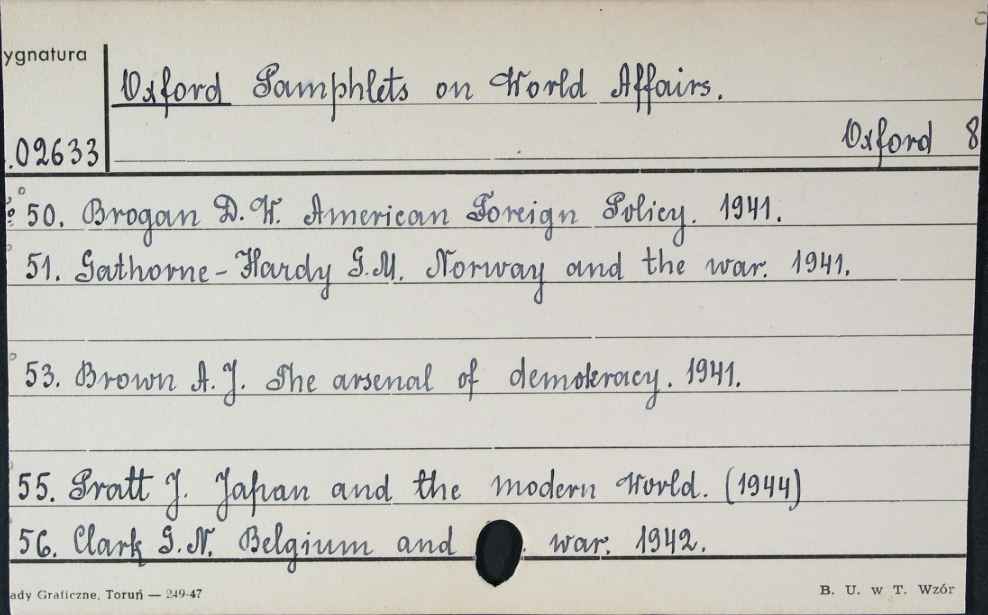 ygnatura
Oxford Pamphlets on World Affairs.
.02633
Oxford 8
50. Brogan D.W. American Foreign Policy. 1941.
51. Gathorne-Hardy G.M. Norway and the war. 1941.
53. Brown A.J. The arsenal of demokracy. 1941.
55. Pratt J. Japan and the modern World. (1944)
56. Clark G.N. Belgium and war. 1942.
ady Graficzne, Toruń — 249-47
B. U. w T. Wzór